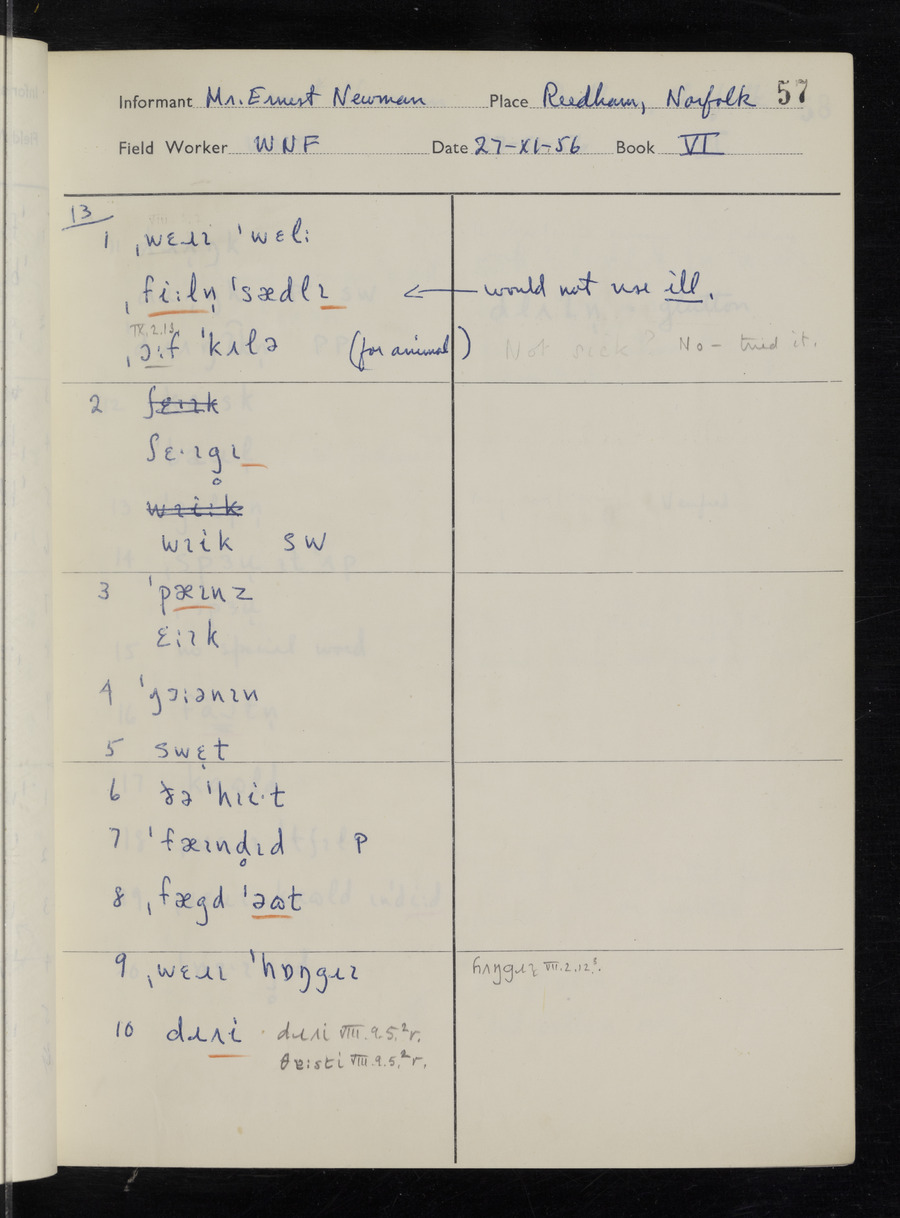 Informant Mr. Ernest Newman Place Reedham, Norfolk 57
Field Worker WNF Date 27-XI-56 Book VI
13
1 ˌwɛɹɪ ˈwɛl:
ˌfi:lɪ̩n ˈsædlɪ ← would not use ill.
IX.2.13
ˌɔ:f ˈkʌlə (for animal) Not sick? No – tried it.
2 ʃɛ:ɪk
ʃɛ·ɪg̥ɪ
wɪi:k
wɪik SW
3 ˈpæɪnz
ɛ:ɪk
4 ˈgɔ:ənɪn
5 swɛ̣t
6 ðə ˈhɪi·t
7 ˈfæɪnd̥ɪd P
8 ˌfægd ˈəɷt
9 ˌwɛɹɪ ˈhɒŋgɹɪ hʌŋgɹɪ VII.2.12
10 dɹʌi dɹʌi VIII.9.5,²r.
θɐ:sti VIII.9.5,²r.